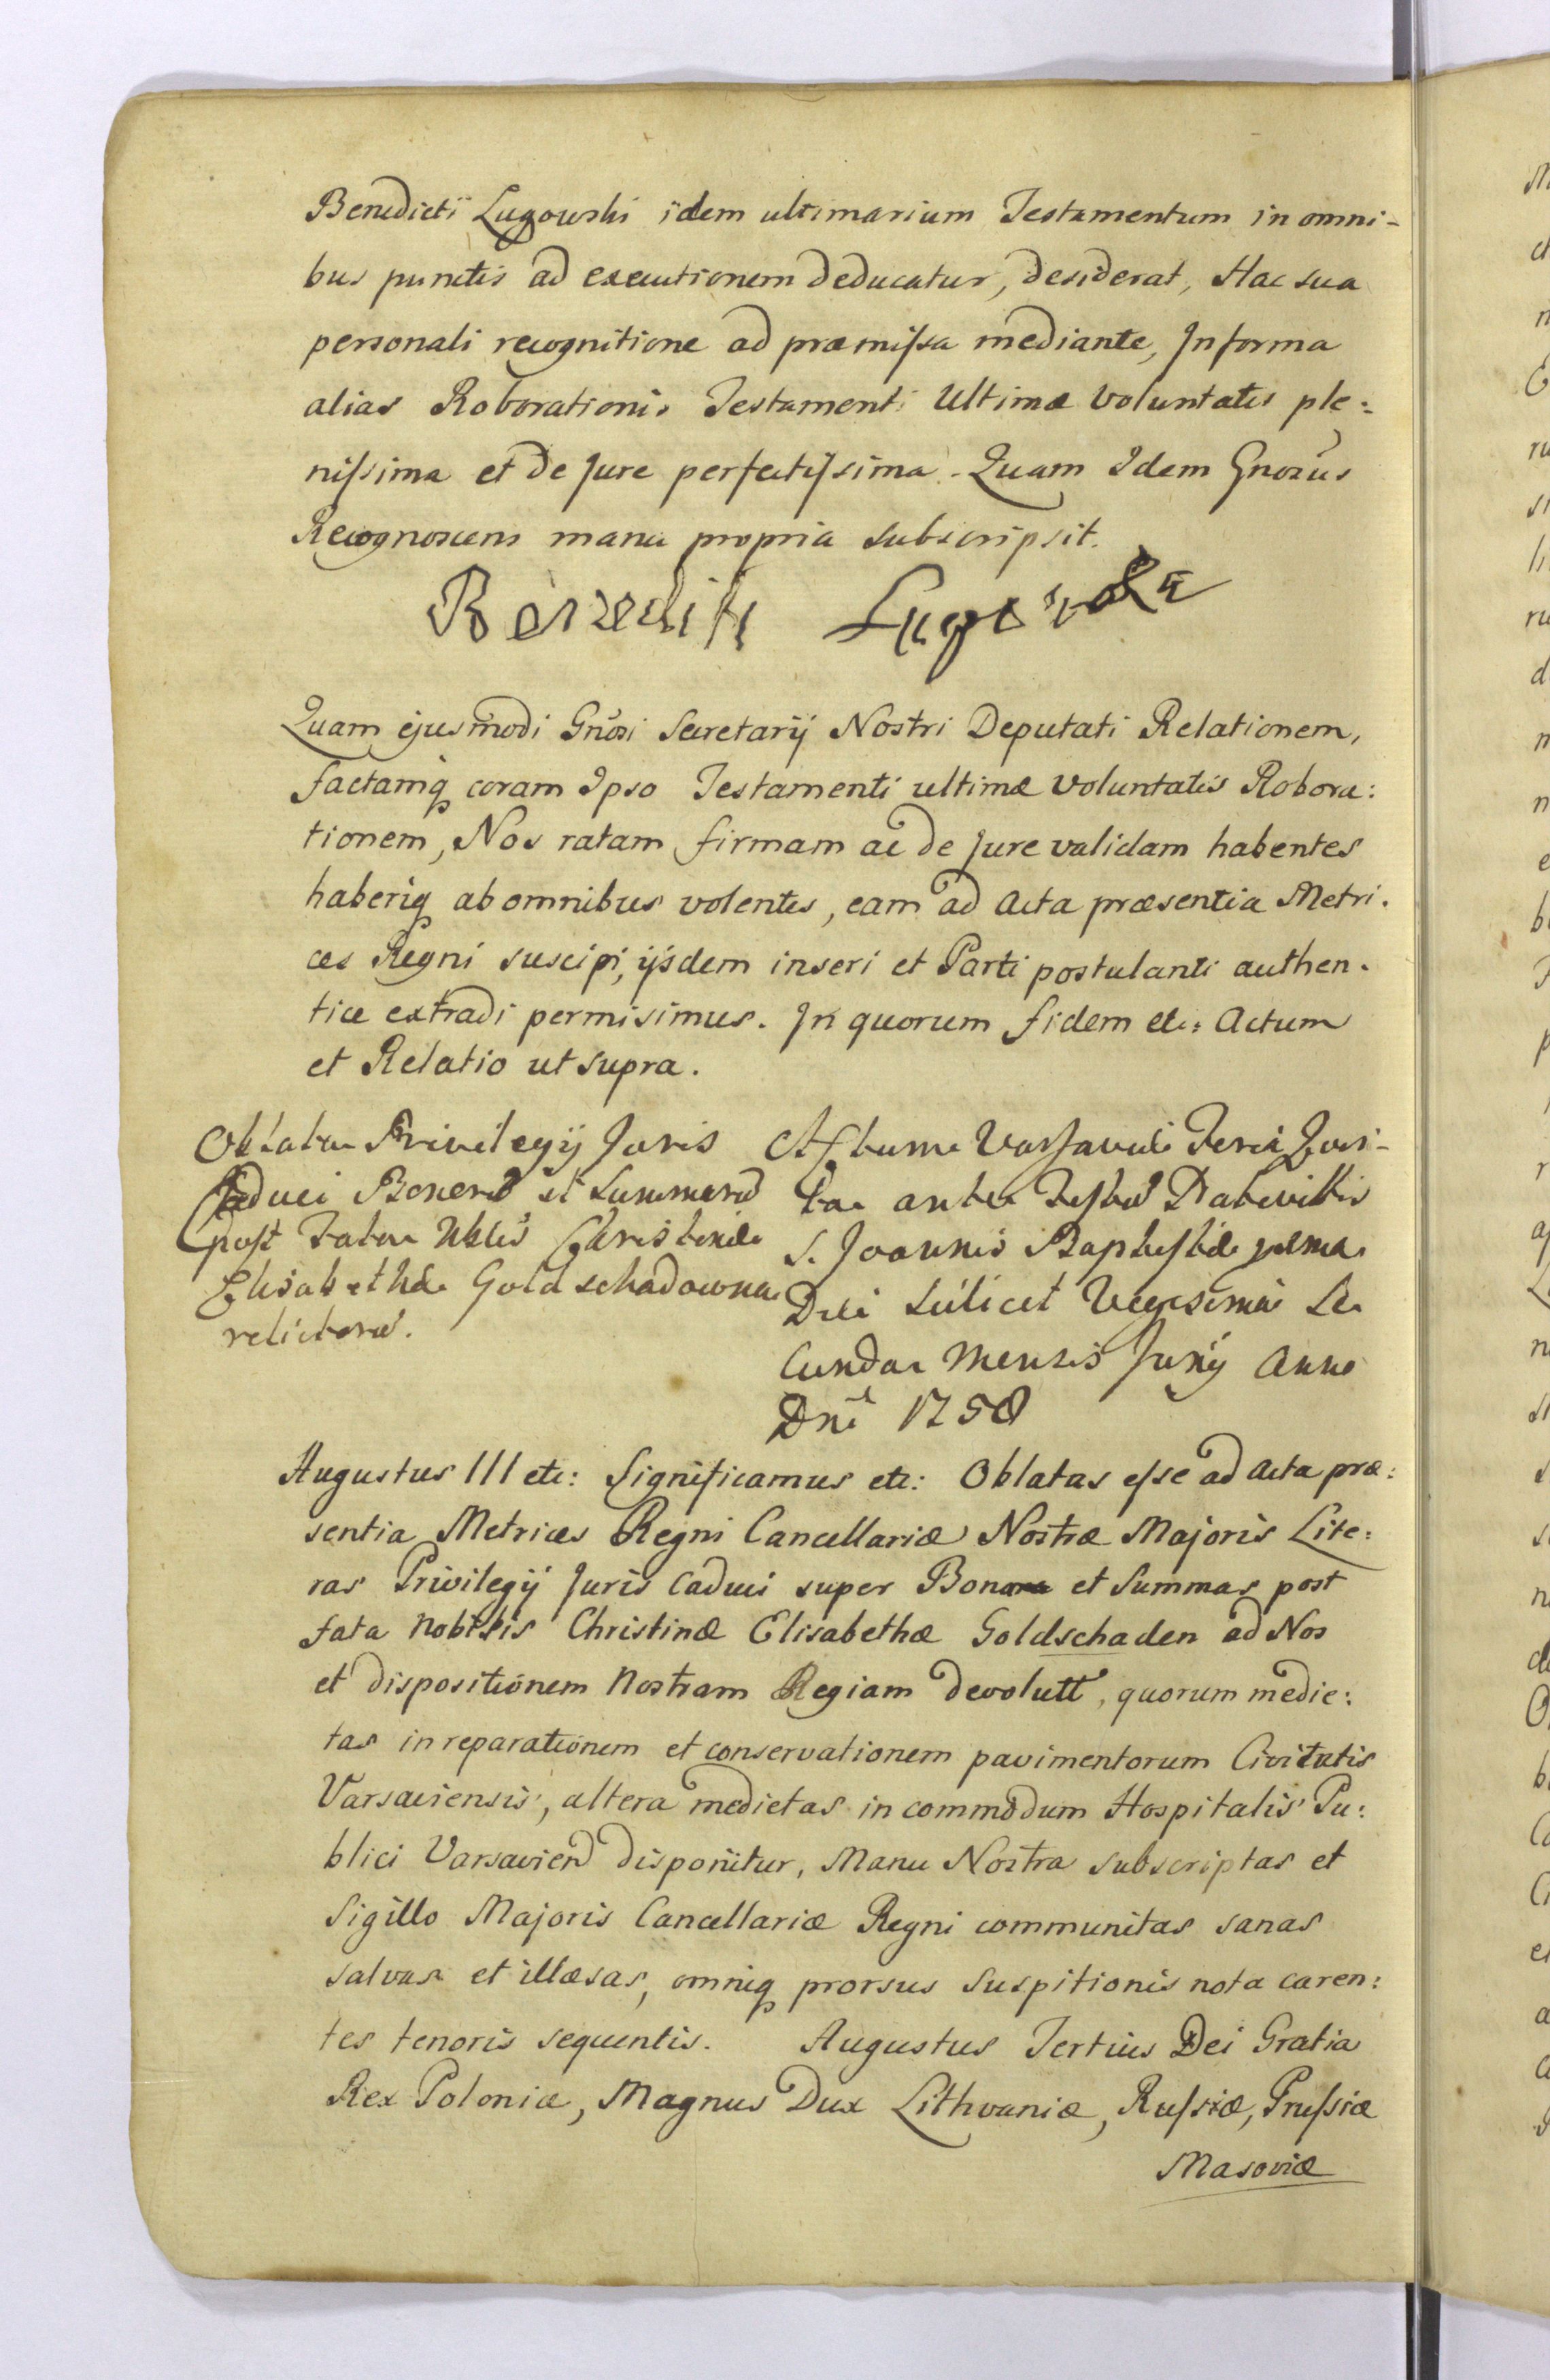 Benedicti Lugowski idem ultimarium Testamentum in omni-
bus punctis ad executionem deducatur, desiderat, Hac sua
personali recognitione ad præmissa mediante, In forma
alias Roborationis Testamenti Ultimæ Voluntatis ple:
nissima et de Jure perfectissima. Quam Idem Gnosus
Recognoscens manu propria subscripsit.
Benedikt Lugowski
Quam ejusmodi Gnosi Secretarij Nostri Deputati Relationem,
factamq coram Ipso Testamenti ultimæ Voluntatis Robora:
tionem, Nos ratam firmam ac de Jure validam habentes
haberiq ab omnibus volentes, eam ad Acta præsentia Metri.
ces Regni suscipi, ijsdem inseri et Parti postulanti authen.
tice extradi permisimus. In quorum fidem etc: Actum
et Relatio ut supra.
Oblata Privilegij Juris
Caduci Bonorũ et Summarũ
post Fata Nblis Christinæ
Elisabethæ Goldschadowna
relictorũ.
Actum Varsaviæ Feria Quin-
ta ante Festũ Nativittis
S. Joannis Baptistæ pxma
Die scilicet Vigesima Se
cunda Mensis Junij Anno
Dni 1758
Augustus III etc: Significamus etc: Oblatas esse ad Acta præ:
sentia Metrices Regni Cancellariæ Nostræ Majoris Lite:
ras Privilegij Juris Caduci super Bona et Summas post
fata Nobilis Christinæ Elisabethæ Goldschaden ad Nos
et dispositionem Nostram Regiam devolutt, quorum medie:
tas in reparationem et conservationem pavimentorum Civitatis
Varsaviensis, altera medietas in commodum Hospitalis Pu:
blici Varsavien disponitur, Manu Nostra subscriptas et
Sigillo Majoris Cancellariæ Regni communitas sanas
salvas et illæsas, omniq prorsus suspitionis nota caren:
tes tenoris sequentis. Augustus Tertius Dei Gratia
Rex Poloniæ, Magnus Dux Lithvaniæ, Russiæ, Prussiæ
Masoviæ